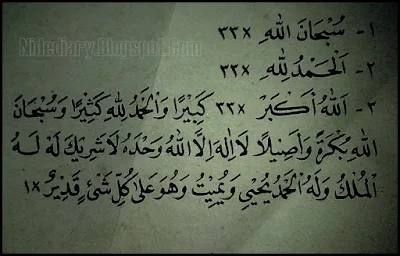 Nidediary.Blogspot.Com
١- سُبْحَانَ اللهِ ×٣٣
٢- اَلْحَمْدُ لِلهِ ×٣٣
٣- اَللهُ أَكْبَرْ ×٣٣ كَبِيْرًا وَالْحَمْدُ لِلهِ كَثِيْرًا وَسُبْحَانَ
اللهِ بُكْرَةً وَاَصِيْلًا لَا اِلٰهَ اِلَّا اللهُ وَحْدَهُ لَا شَرِيْكَ لَهُ لَهُ
الْمُلْكُ وَلَهُ الْحَمْدُ يُحْيِيْ وَيُمِيْتُ وَهُوَ عَلٰى كُلِّ شَيْءٍ قَدِيْرٌ ×١